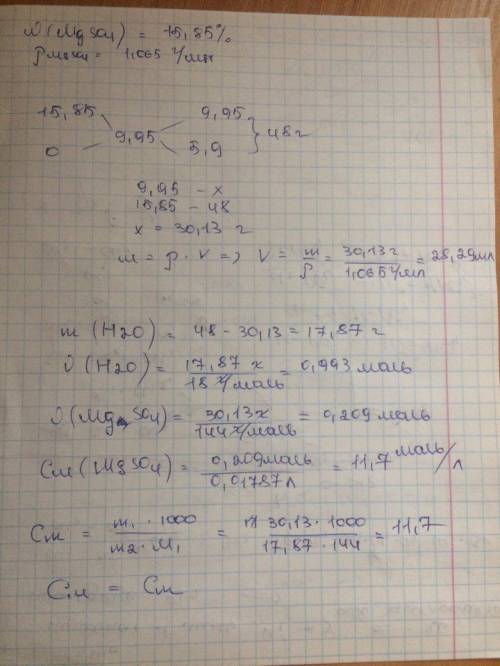 ω(MgSO4) = 15,85%
ρMgSO4 = 1,065 г/мл
15,85 9,95
9,95 } 48 г
0 5,9
9,95 – x
15,85 – 48
x = 30,13 г
m = ρ · V => V = m/ρ = 30,13 г / 1,065 г/мл = 28,29 мл
m (H2O) = 48 - 30,13 = 17,87 г
ν (H2O) = 17,87 г / 18 г/моль = 0,993 моль
ν(MgSO4) = 30,13 г / 144 г/моль = 0,209 моль
Cм (MgSO4) = 0,209 моль / 0,01787 л = 11,7 моль/л
Cм = m1 · 1000 / m2 · M1 = 30,13 · 1000 / 17,87 · 144 = 11,7
Cм = Cм